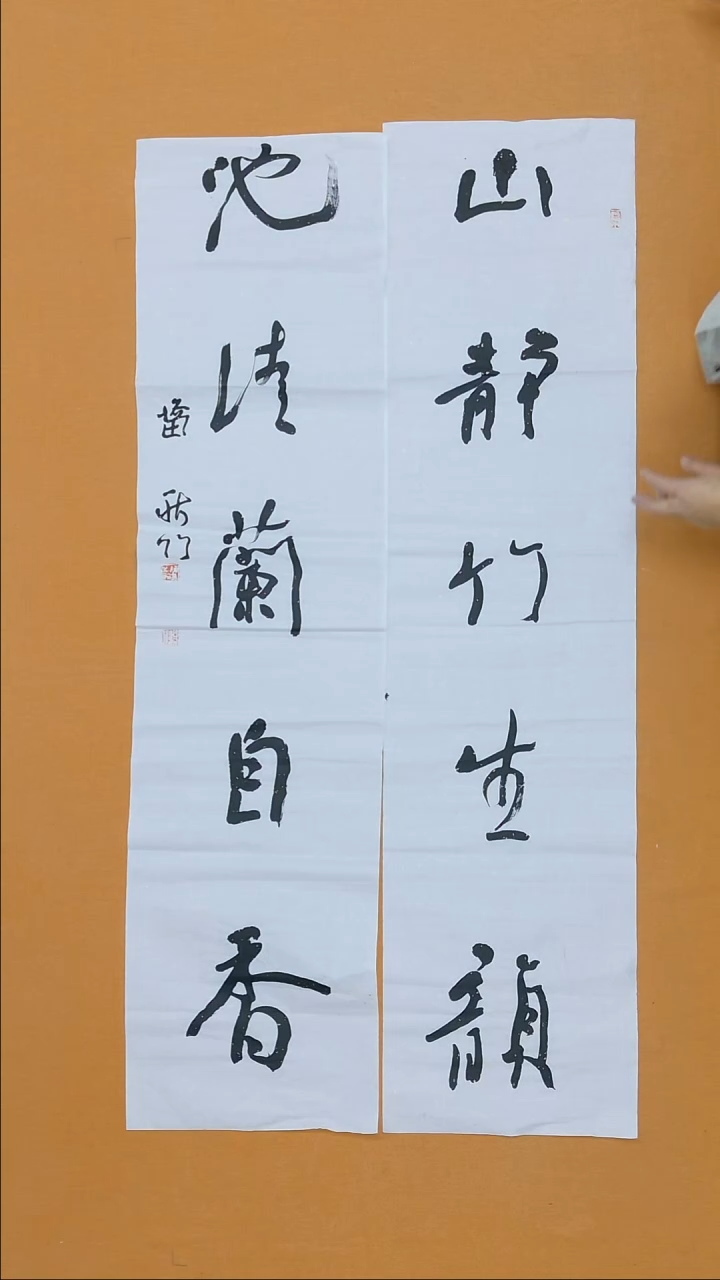 山静竹生韻
池清蘭自香
秋竹